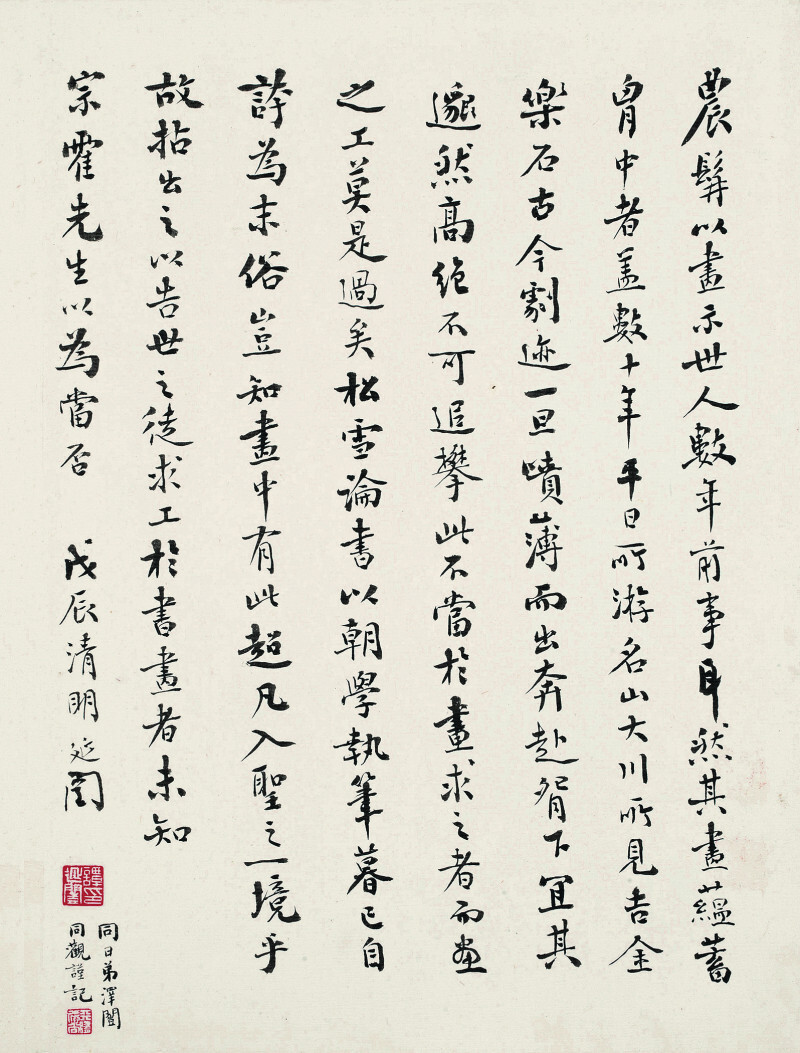 農髯以畫示世人數年前事耳然其畫蘊蓄
胷中者蓋數十年平日所游名山大川所見吉金
樂石古今劇迹一旦噴薄而出奔赴腕下宜其
邈然高絕不可追攀此不當於畫求之者而畫
之工莫是過矣松雪論書以朝學執筆暮已自
誇為末俗豈知畫中有此超凡入聖之一境乎
故拈出之以告世之徒求工於書畫者未知
宗霍先生以為當否 戊辰清明延闓
同日弟澤闓
同觀謹記